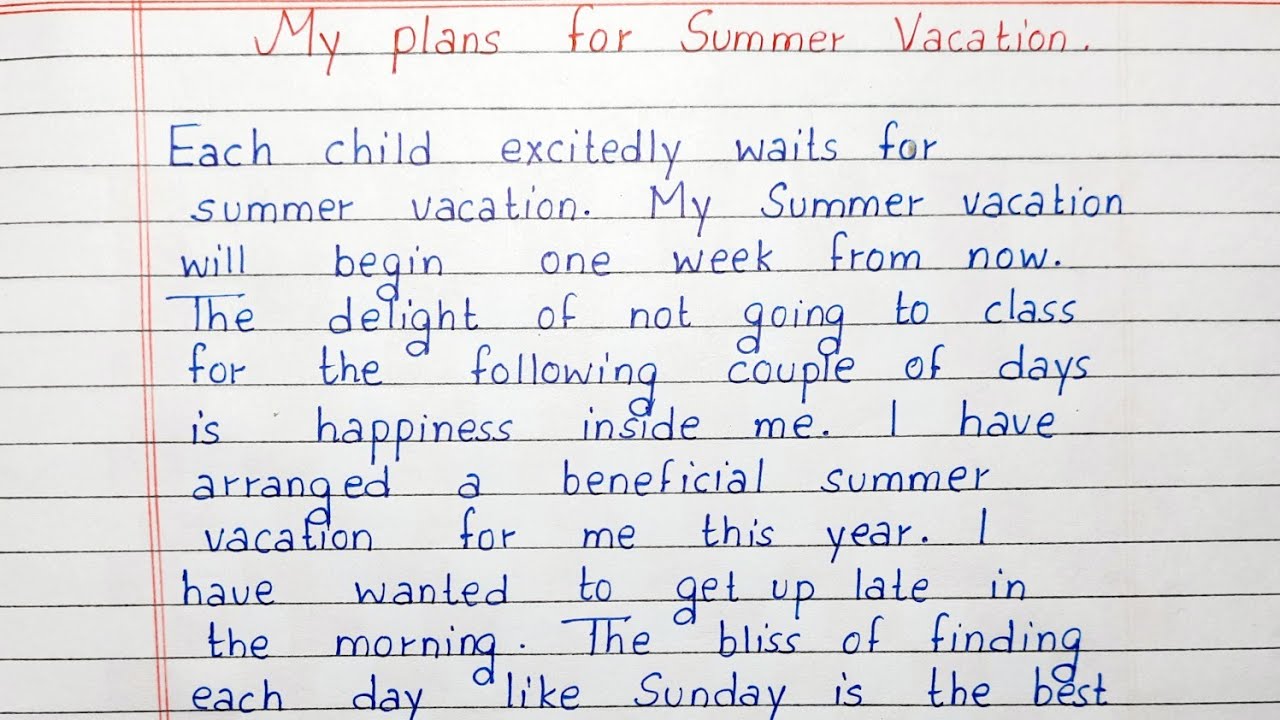 My plans for Summer Vacation.
Each child excitedly waits for
summer vacation. My Summer vacation
will begin one week from now.
The delight of not going to class
for the following couple of days
is happiness inside me. I have
arranged a beneficial summer
vacation for me this year. I
have wanted to get up late in
the morning. The bliss of finding
each day like Sunday is the best